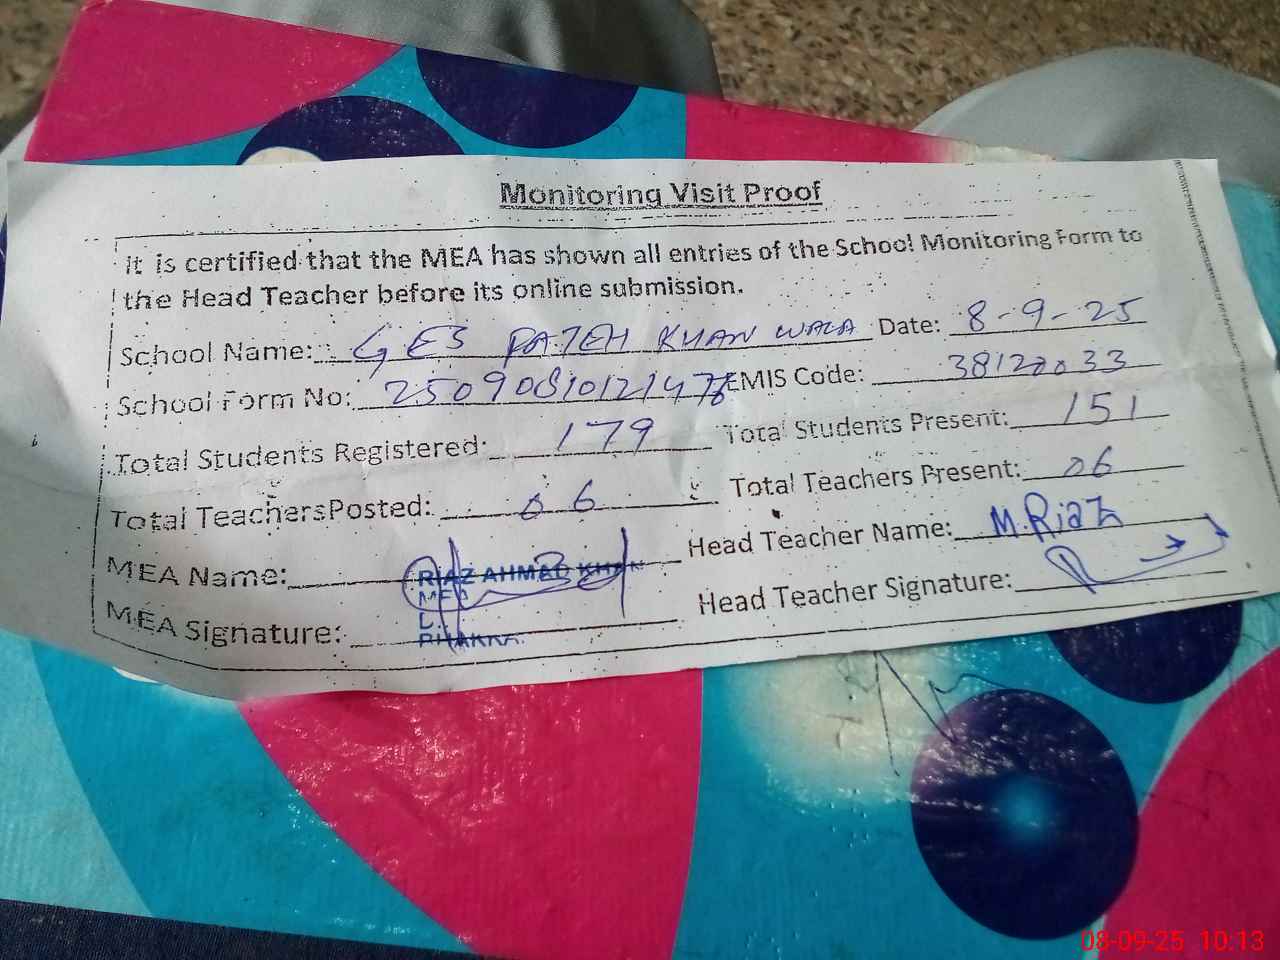 Monitoring Visit Proof
It is certified that the MEA has shown all entries of the School Monitoring Form to
the Head Teacher before its online submission.
School Name: GES FATEH KHAN WALA Date: 8-9-25
School Form No: 25090810121478 EMIS Code: 38120033
Total Students Registered: 179 Total Students Present: 151
Total Teachers Posted: 06 Total Teachers Present: 06
MEA Name: RIAZ AHMAD KHAN Head Teacher Name: M.Riaz
MEA
MEA Signature: Head Teacher Signature:
BHAKKAR.
08-09-25 10:13